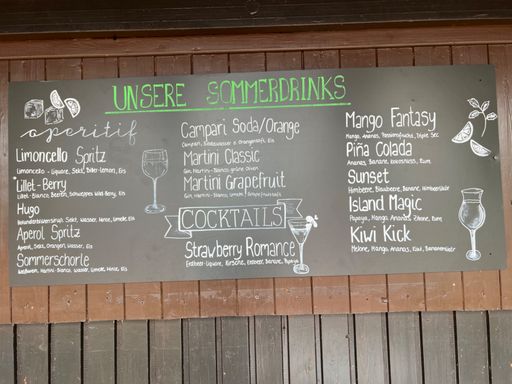 UNSERE SOMMERDRINKS
aperitif
Limoncello Spritz
Limoncello - Liqueure, Sekt, Bitter-Lemon, Eis
Lillet-Berry
Lillet-Blanc, Beeren, Schweppes Wild Berry, Eis
Hugo
Holunderblütensirup, Sekt, Wasser, Minze, Limette, Eis
Aperol Spritz
Aperol, Sekt, Orangen, Wasser, Eis
Sommerschorle
Martini-Bianco, Wasser, Limette, Minze, Eis
Campari Soda/Orange
Campari, Sodawasser o. Orangensaft, Eis
Martini Classic
Gin, Martini-Bianco, grüne Oliven
Martini Grapefruit
Gin, Martini-Bianco
COCKTAILS
Strawberry Romance
Erdbeer-Liqueure, Kirsche, Erdbeer, Banane, Papaya
Mango Fantasy
Mango, Ananas, Passionsfrucht, Triple Sec
Piña Colada
Ananas, Banane, Kokosnuss, Rum
Sunset
Himbeere, Blaubeere, Banane,
Island Magic
Papaya, Mango, Ananas, Zitrone, Rum
Kiwi Kick
Melone, Mango, Ananas, Kiwi,